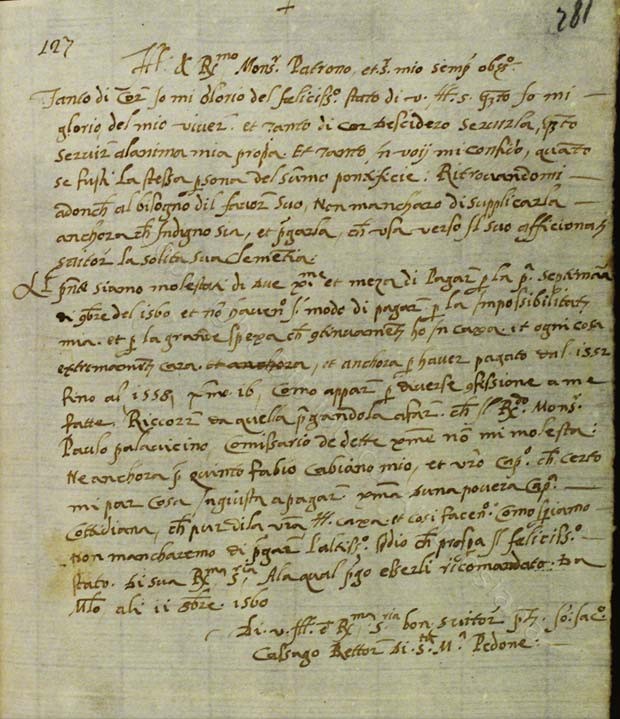 +
127
281
Ill. & R.mo Mons.r Patrono, et S.r mio semp obss.o
Tanto di Cor Io mi glorio del feliciss.o stato di v. Ill. S. q.to Io mi
glorio del mio viver. et tanto di cor desidero servirla, q.to
servir alanima mia propa. Et tanto in voij mi confido, quanto
se fusti la stessa psona del sumo pontefice: Ritrovandomi
adonch al bisogno dil favor suo, Non mancharo di supplicarla
anchora ch Indigno sia, et pgarla, ch usa verso il suo afficionat
svitor la solita sua Clementia:
pnte siamo molestati di due xme et meza di Pagar p la p.a septimana
di 9bre del 1560 et nō haven.o il modo di pagar p la Impossibilitat
mia. et p la grande spexa ch 9tinuament ho In caxa et ogni cosa
extremament cara. et anchora, et anchora p haver pagato dal 1552
fino al 1558, xme 16, Como appar p diverse 9fessione a me
fatte, Riccorr da quella pgandola a far. ch il R.do Mons.r
Paulo palavicino, Comissario de dette xme nō mi molesta:
Ne anchora S.r quinto Fabio Cabiano mio, et vr̄o Cap.o ch certo
mi par cosa Ingiusta a pagar xma duna povera Cap.a
Cottidiana, ch pur dila vr̄a Ill. caxa. et cosi facen.o Como spiamo
Non mancharemo di pgar laltiss.o Idio ch prospa il feliciss.o
stato. di sua R.ma S.ria Ala qual pgo esserli ricomandato. Da
Mlo ali 11 9bre. 1560
Di. v. Ill. et R.ma S.ria bon. svitor p.t Io. Iac.o
Calsago Rettor di S.ta M.a Pedone.